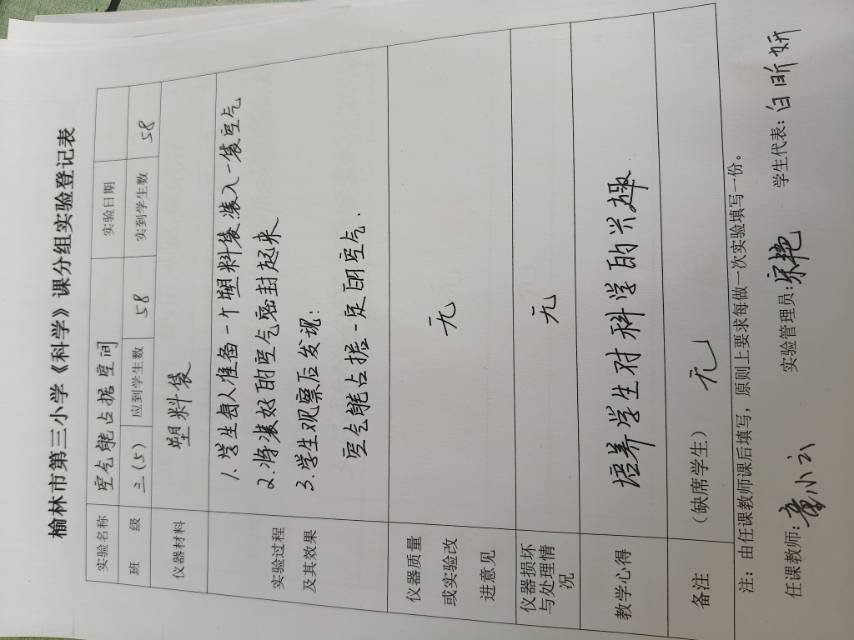 榆林市第三小学《科学》课分组实验登记表
实验名称 空气能占据空间 实验日期
班 级 三(5) 应到学生数 58 实到学生数 58
仪器材料 塑料袋
实验过程及其效果
1.学生每人准备一个塑料袋,装入一袋空气
2.将装好的空气密封起来
3.学生观察后发现:
空气能占据一定的空气.
仪器质量或实验改进意见 无
仪器损坏与处理情况 无
教学心得 培养学生对科学的兴趣
备注 (缺席学生) 无
注:由任课教师课后填写,原则上要求每做一次实验填写一份。
任课教师: 小云 实验管理员:宋艳 学生代表:白昕妍